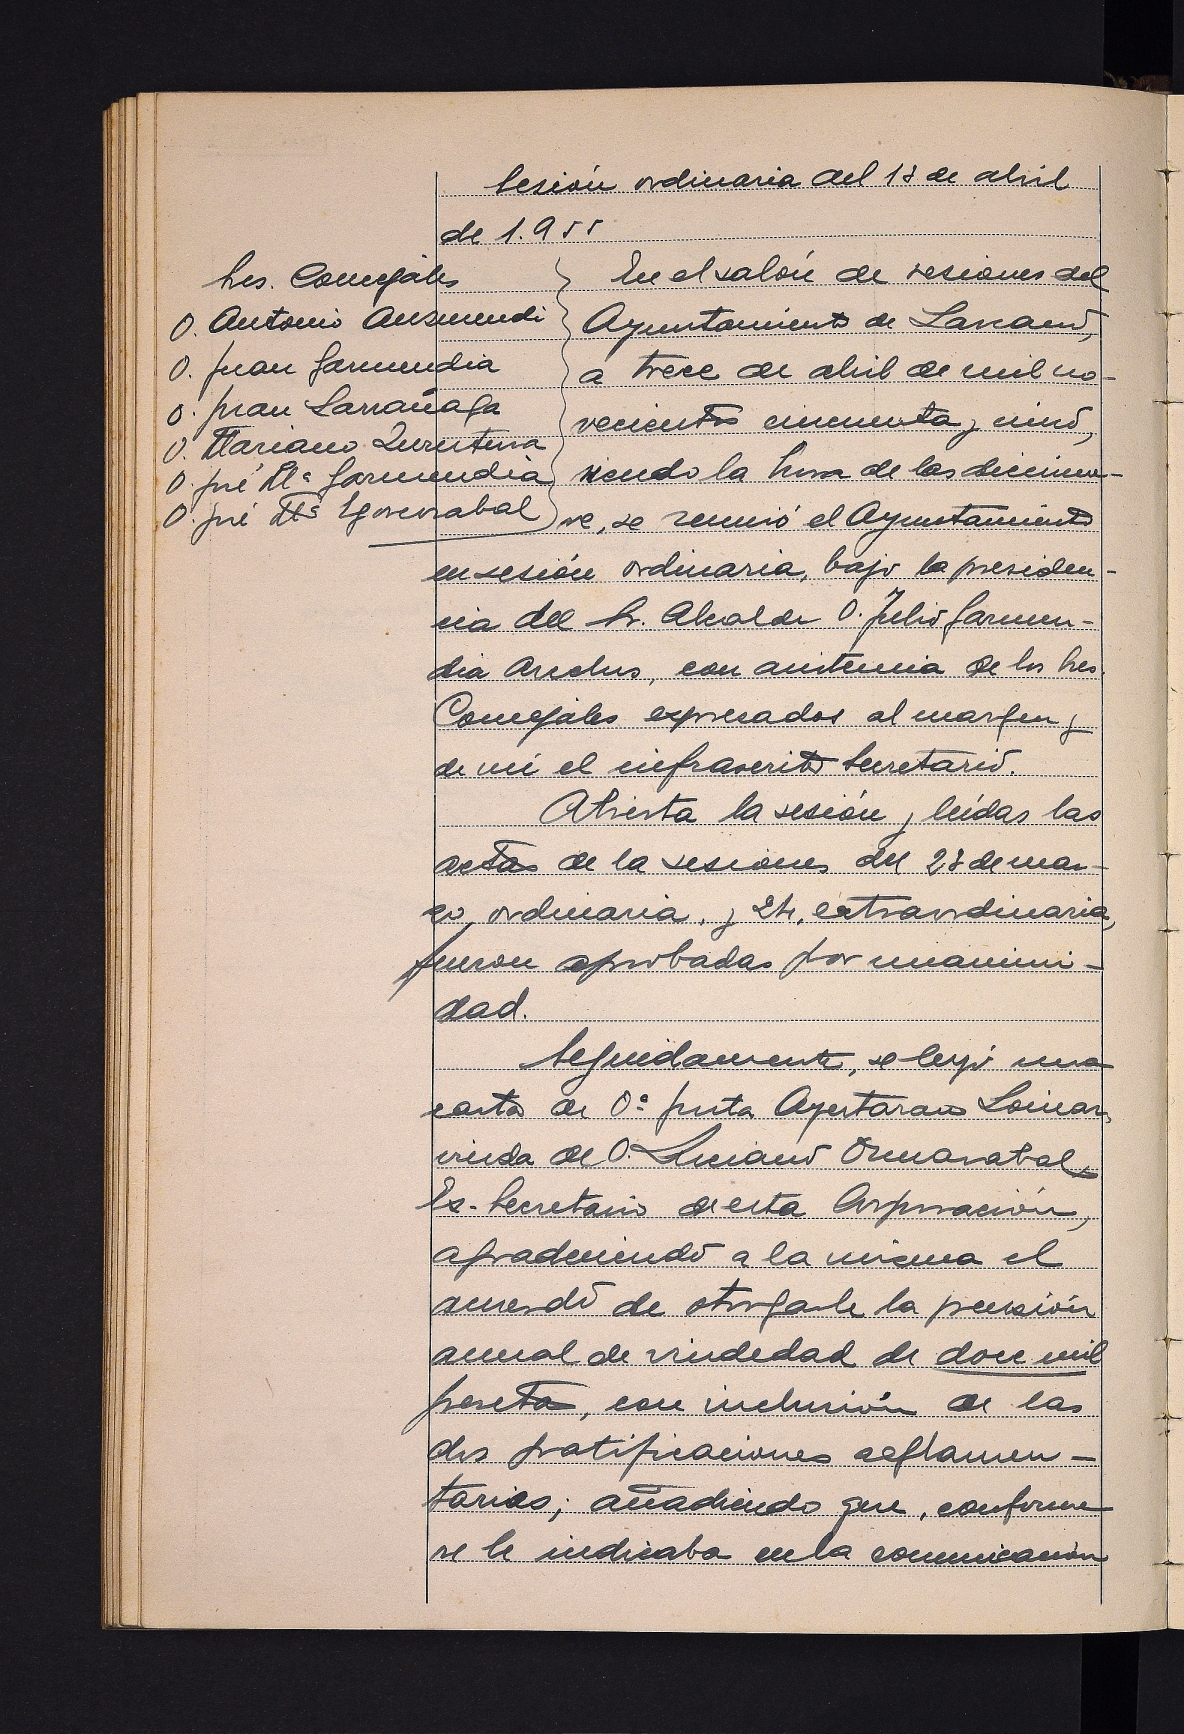 Sesión ordinaria del 13 de abril
de 1.955
Sres. Concejales
D. Antonio Auzmendi
D. Juan Garmendia
D. Juan Larrañaga
D. Mariano Zurutuza
D. José Mª Garmendia
D. José Mª Ygorzabal
En el salón de sesiones del
Ayuntamiento de Lazcano,
a trece de abril de mil no-
vecientos cincuenta y cinco,
siendo la hora de las diecinue-
ve, se reunió el Ayuntamiento
en sesión ordinaria, bajo la presiden-
cia del Sr. Alcalde D. Julio Garmen-
dia , con asistencia de los Sres.
Concejales expresados al margen y
de mi el infrascrito Secretario.
Abierta la sesión y leídas las
actas de la sesiones del 23 de mar-
zo, ordinaria, y 24, extraordinaria,
fueron aprobadas por unanimi-
dad.
Seguidamente, se leyó una
carta de Dª Justa Ayestaran
viuda de D. Luciano Ormazabal,
Ex-Secretario de esta Corporación,
agradeciendo a la misma el
acuerdo de otorgarle la pensión
anual de viudedad de doce mil
pesetas, con inclusión de las
dos gratificaciones reglamen-
tarias; añadiendo que, conforme
se le indicaba en la comunicación